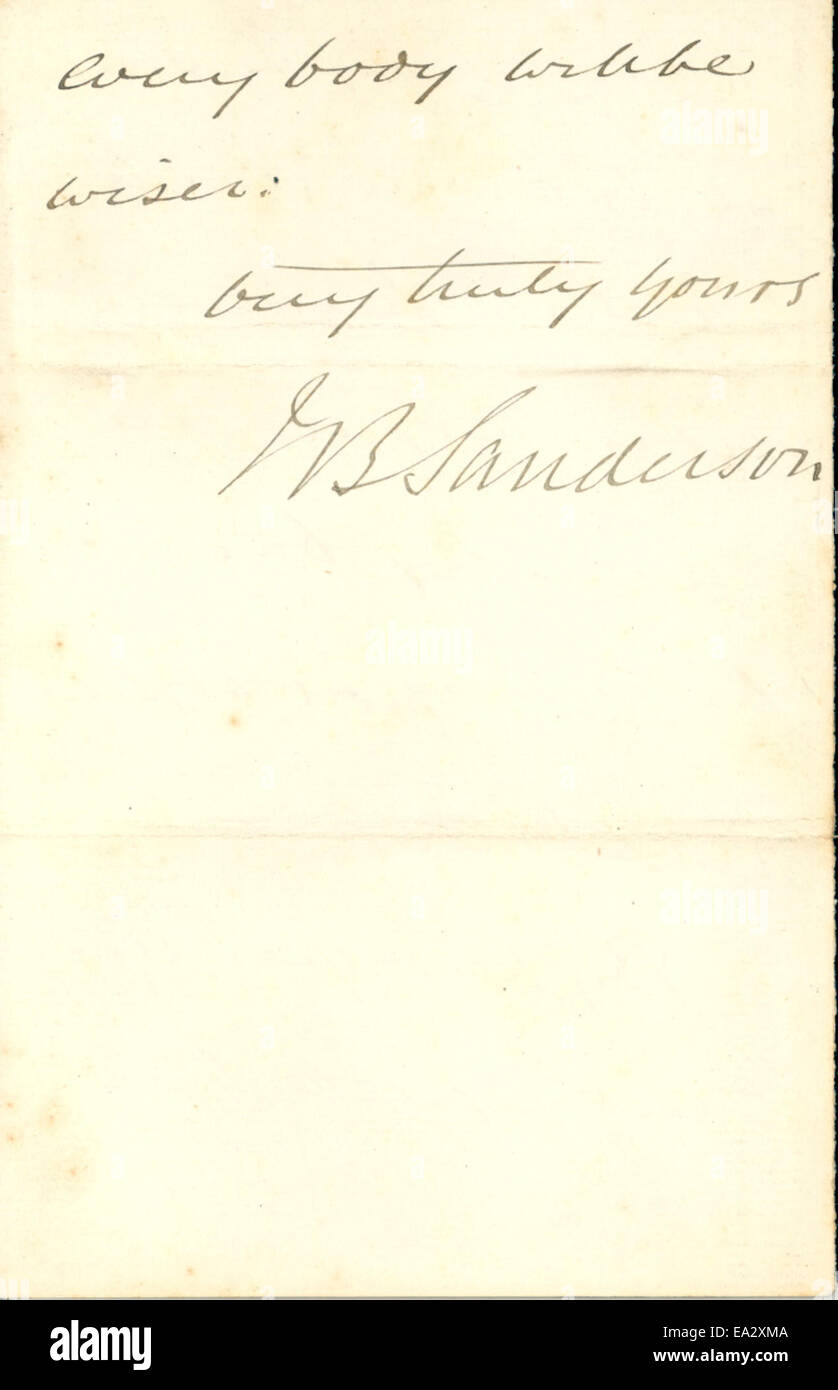 every body will be
wiser:
very truly yours
JB Sanderson
alamy
alamy
alamy
alamy
Image ID: EA2XMA
www.alamy.com